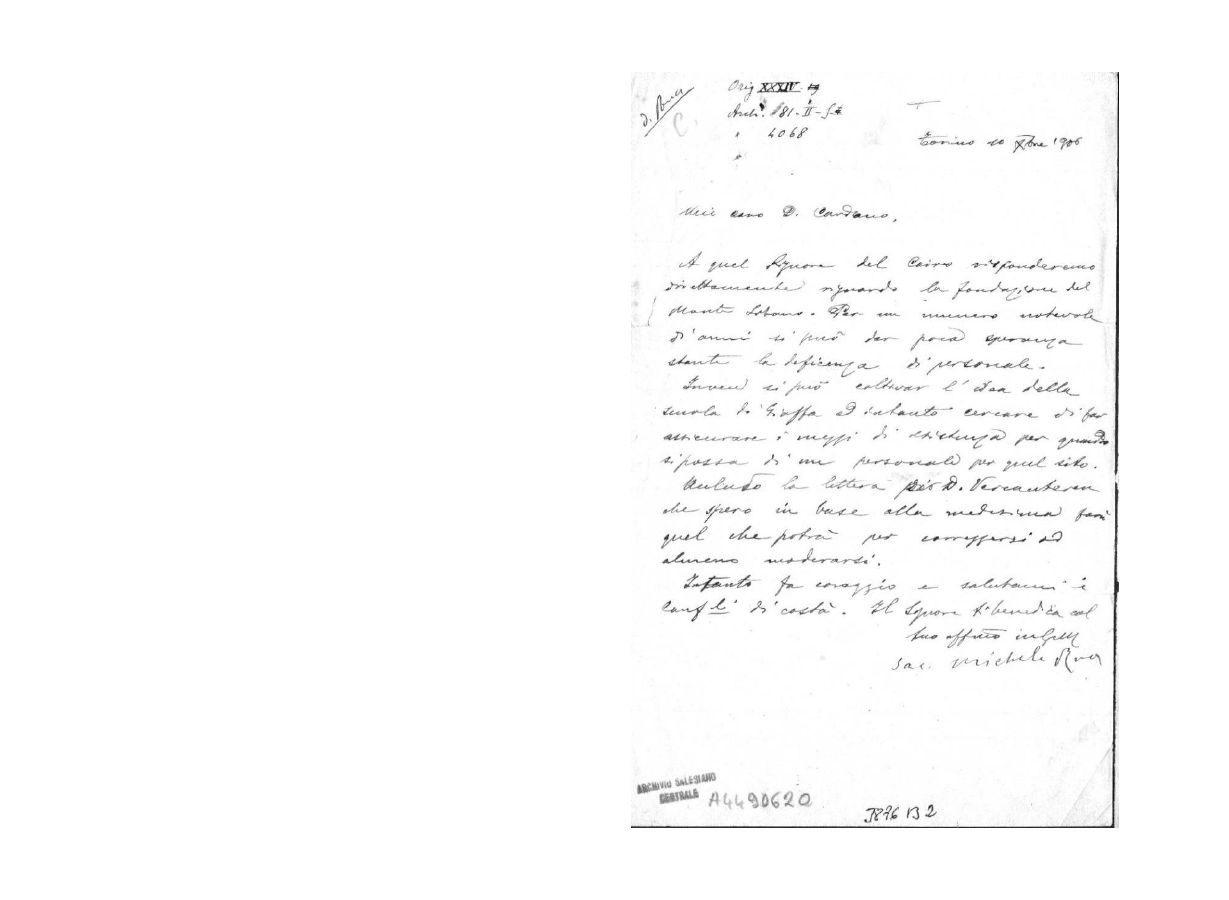 D. Rua
C.
Orig XXXIV 19
Arch. 181-II-
" 4068
"
Torino 10 Xbre 1906
Mio caro D. Cardano,
A quel Signore del Cairo risponderemo
direttamente riguardo la fondazione del
Monte Libano. Per un numero notevole
di anni si può dar poca speranza
stante la deficenza di personale.
Invece si può coltivar l'idea della
scuola di Giaffa ed intanto cercare di far
assicurare i mezzi di esistenza per quando
si possa di un personale per quel sito.
Unluso la lettera D. Vercauteren
che spero in base alla medesima farà
quel che potrà per correggersi od
almeno moderarsi.
Intanto fa coraggio e salutami i
Confli di costà. Il Signore ti benedica col
tuo affmo in G. M.
Sac. Michele Rua
ARCHIVIO SALESIANO
CENTRALE
A4490620
3876 B 2